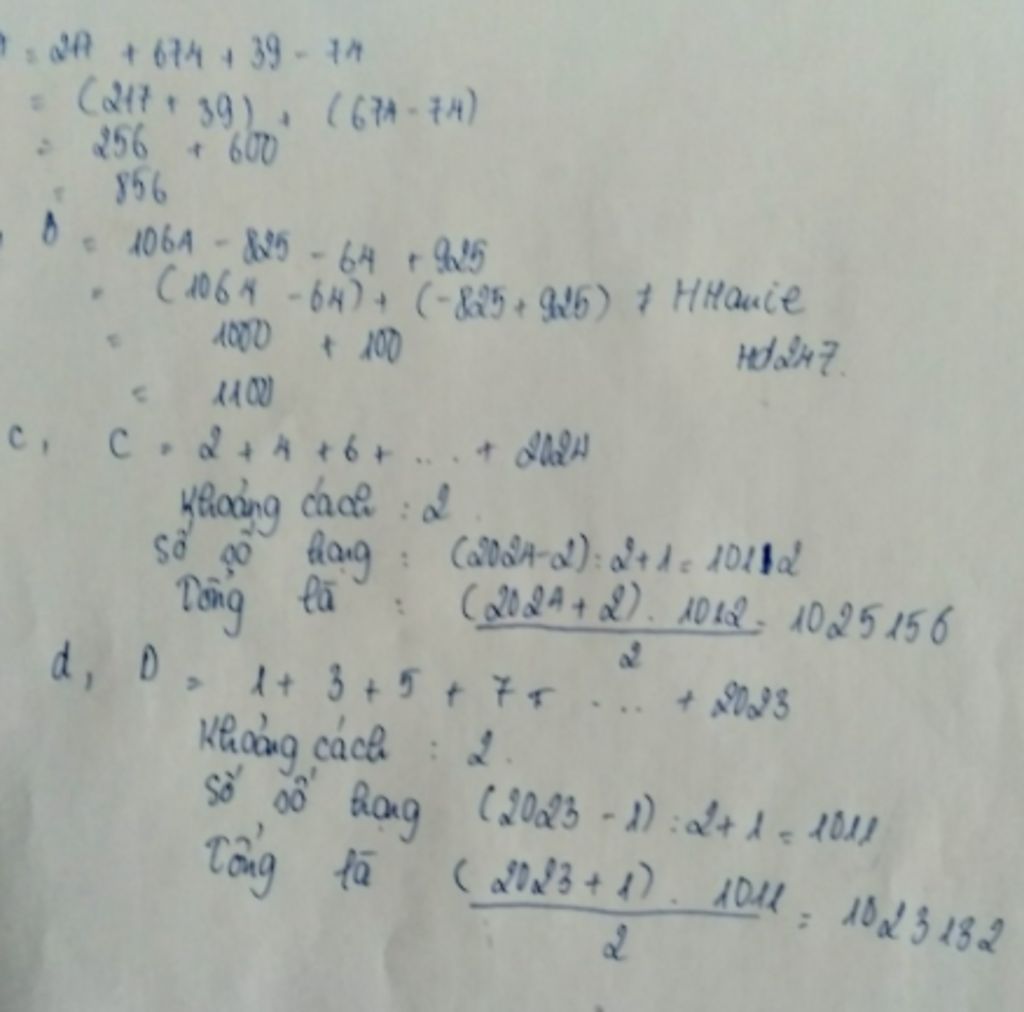 = 217 + 674 + 39 - 74
= (217 + 39) + (674 - 74)
= 256 + 600
= 856
B = 1064 - 825 - 64 + 925
= (1064 - 64) + (-825 + 925)
= 1000 + 100
= 1100
HHanie
Hd247.
c, C = 2 + 4 + 6 + ... + 2024
Khoảng cách : 2
Số số hạng : (2024-2):2+1 = 1012
Tổng là : (2024 + 2) . 1012 = 1025156
2
d, D = 1 + 3 + 5 + 7 + ... + 2023
Khoảng cách : 2.
Số số hạng (2023 - 1) :2+1 = 1011
Tổng là (2023 + 1) . 1011 = 1023132
2